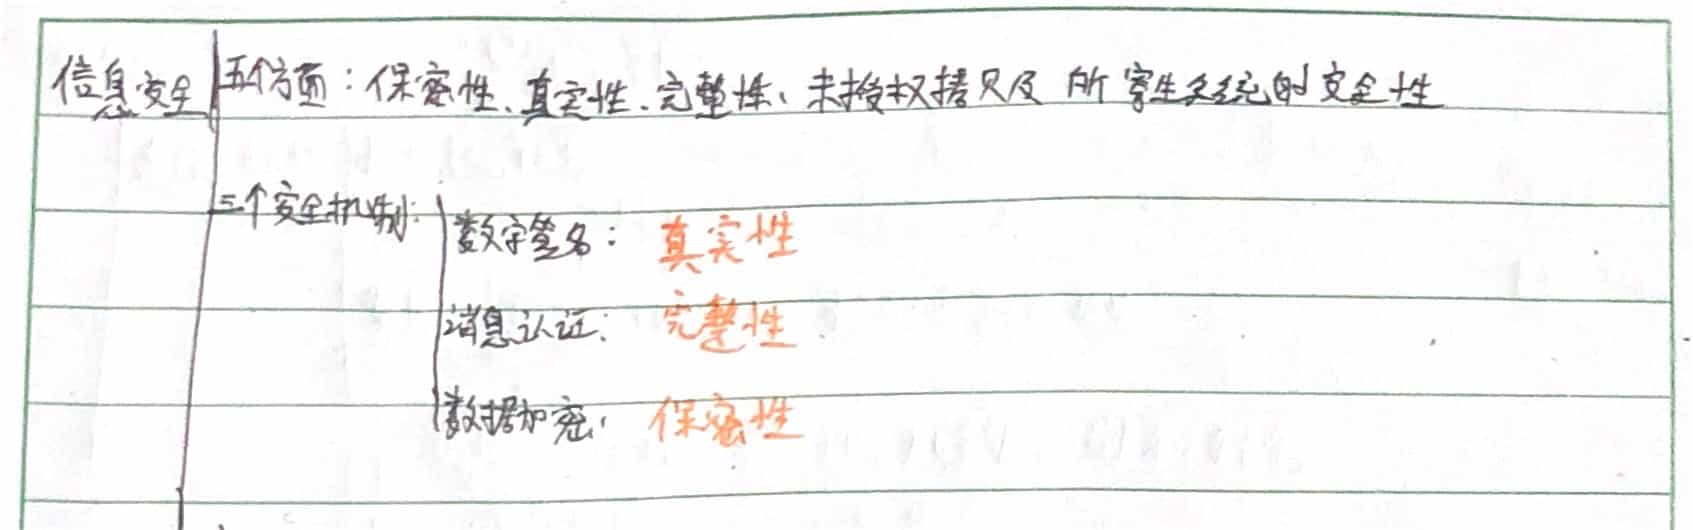 信息安全 五个方面：保密性、真实性、完整性、未授权拷贝及 所寄生系统的安全性
三个安全机制：
数字签名： 真实性
消息认证： 完整性
数据加密： 保密性